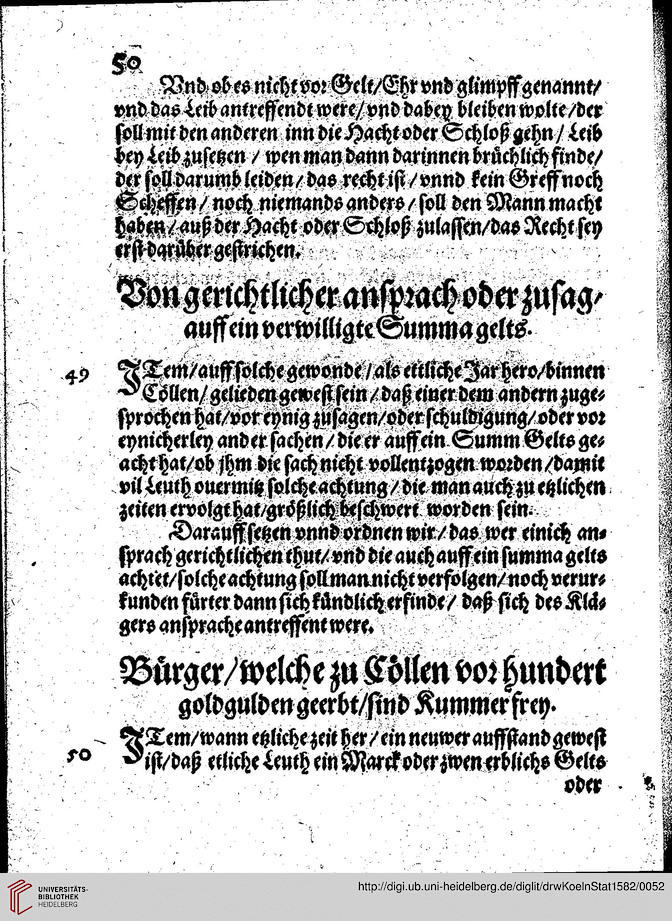 50
Vnd ob es nicht vor Gelt/Ehr vnd glimpff genannt/
vnd das Leib antreffendt were/ vnd dabey bleiben wolte /der
soll mit den anderen inn die Hacht oder Schloß gehn / Leib
bey Leib zusetzen / wen man dann darinnen brüchlich finde/
der soll darumb leiden / das recht ist / vnnd kein Greff noch
Scheffen / noch niemands anders / soll den Mann macht
haben / auß der Hacht oder Schloß zulassen/das Recht sey
erst darüber gestrichen.
Von gerichtlicher ansprach oder zusag/
auff ein verwilligte Summa gelts.
49 ITem/auff solche gewonde / als ettliche Jar hero/binnen
Cöllen/ gelieden gewest sein / daß einer dem andern zuge-
sprochen hat/vor eynig zusagen/oder schuldigung/ oder vor
eynicherley ander sachen / die er auff ein Summ Gelts ge-
acht hat/ob jhm die sach nicht vollentzogen worden /damit
vil Leuth ouermitz solche achtung / die man auch zu etzlichen
zeiten ervolgt hat/größlich beschwert worden sein.
Darauff setzen vnnd ordnen wir / das wer einich an-
sprach gerichtlichen thut/ vnd die auch auff ein summa gelts
achtet/solche achtung soll man nicht verfolgen/ noch verur-
kunden fürter dann sich kündlich erfinde / daß sich des Klä-
gers ansprache antreffent were.
Bürger/welche zu Cöllen vor hundert
goldgulden geerbt/sind Kummer frey.
50 ITem/wann etzliche zeit her / ein neuwer auffstand gewest
ist/daß etliche Leuth ein Marck oder zwen erblichs Gelts
oder
UNIVERSITÄTS-
BIBLIOTHEK
HEIDELBERG
http://digi.ub.uni-heidelberg.de/diglit/drwKoelnStat1582/0052